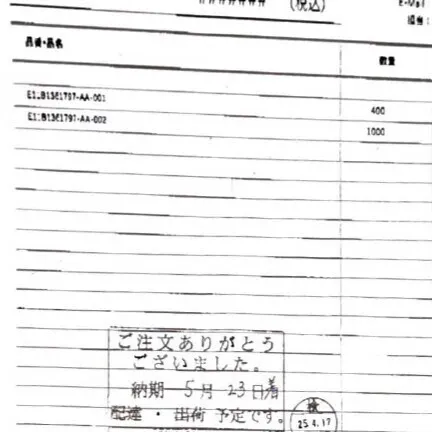 ####### (税込)
E-Mail
担当:
品番・品名
数量
400
1000
ご注文ありがとう
ございました。
納期 5月 23日着
配達・出荷 予定です。
25.4.17